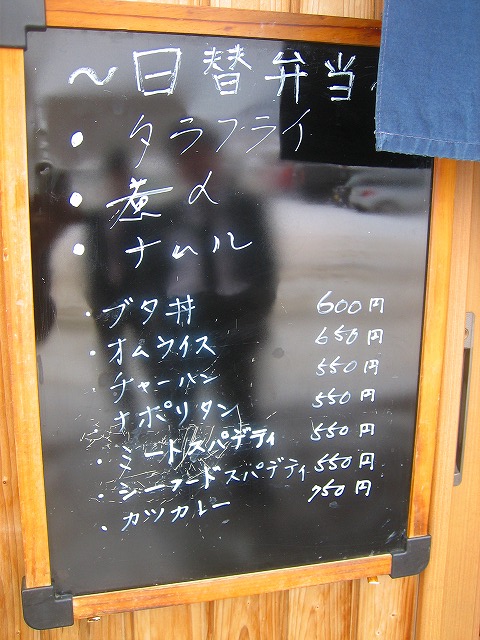 ～日替弁当～
・タラフライ
・煮〆
・ナムル
・ブタ丼 600円
・オムライス 650円
・チャーハン 550円
・ナポリタン 550円
・ミートスパゲティ 550円
・シーフードスパゲティ 550円
・カツカレー 750円